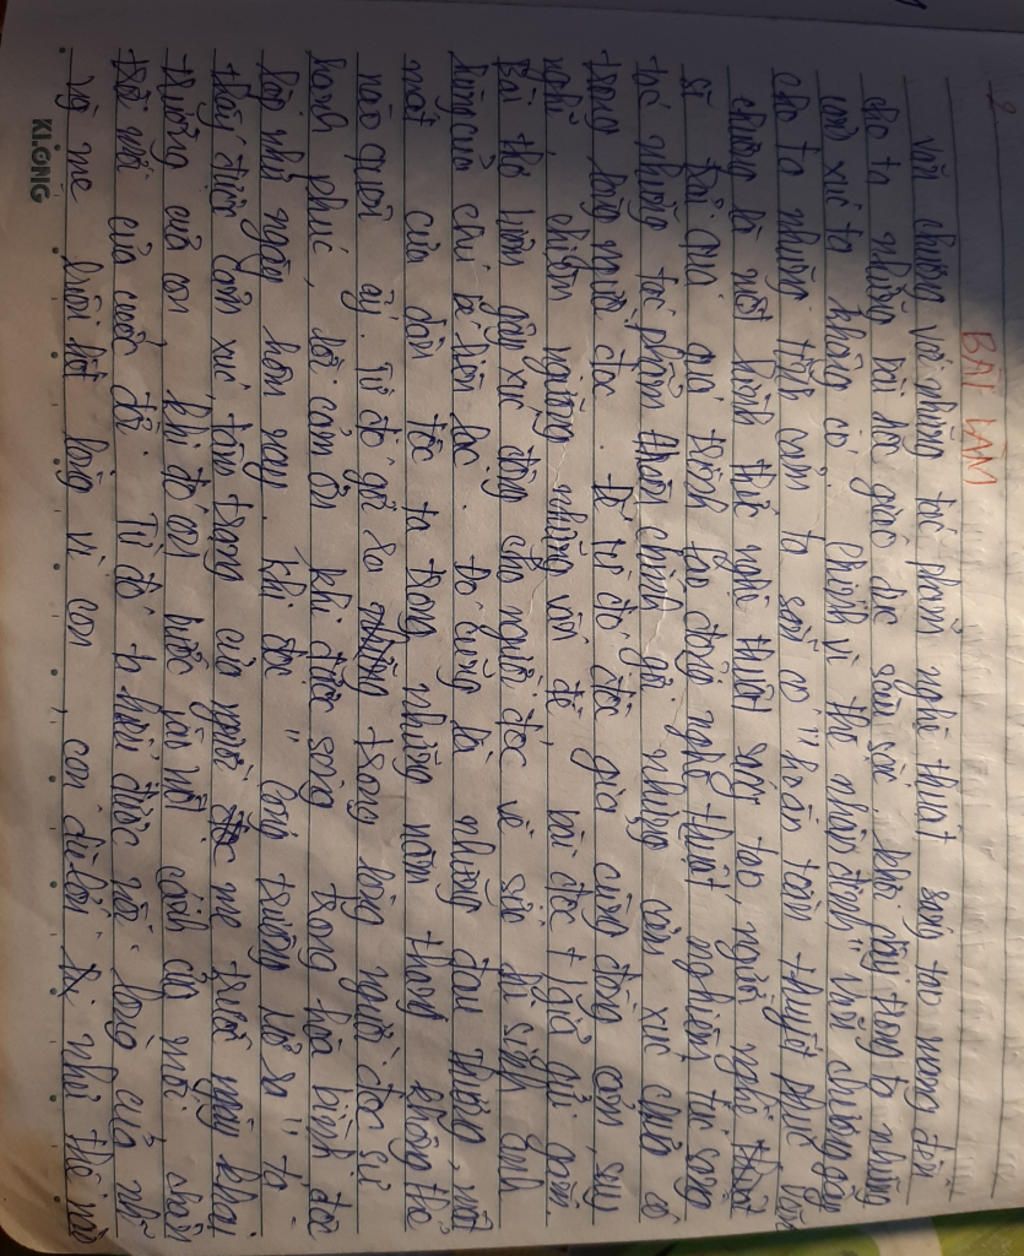 2
BÀI LÀM
Văn chương với những tác phẩm nghệ thuật sáng tạo mang đến
cho ta những bài học giáo dục sâu sắc, khơi dậy trong ta những
cảm xúc ta không có. Chính vì thế nhận định "Văn chương gây
cho ta những tình cảm ta sẵn có" hoàn toàn thuyết phục. Văn
chương là một hình thức nghệ thuật sáng tạo, người nghệ
sĩ phải qua quá trình lao động nghệ thuật nghiêm túc sáng
tác những tác phẩm thẩm chính gửi những cảm xúc chưa có
trong lòng người đọc. Để từ đó độc giả cùng đồng cảm, suy
nghĩ, chiêm ngưỡng những vấn đề, bài đọc t/giả gửi gắm.
Bài thơ luôn gây xúc động cho người đọc về sự hi sinh anh
hùng của chị . Đó cũng là những đau thương, mất
mát của dân tộc ta trong những năm tháng không thể
nào quên ấy. Từ đó gửi ra trong lòng người đọc sự
hạnh phúc, lời cảm ơn khi được sống trong hòa bình, độc
lập như ngày hôm nay. Khi đọc "Cổng trường mở ra" ta
thấy được cảm xúc, tâm trạng của người mẹ trước ngày khai
trường của con, khi đó con bước vào một cánh cửa mới: chân
trời mới của cuộc đời. Từ đó ta hiểu được nỗi lòng của
mẹ luôn hết lòng vì con, con dù lớn nhỏ thế nào
KLONG